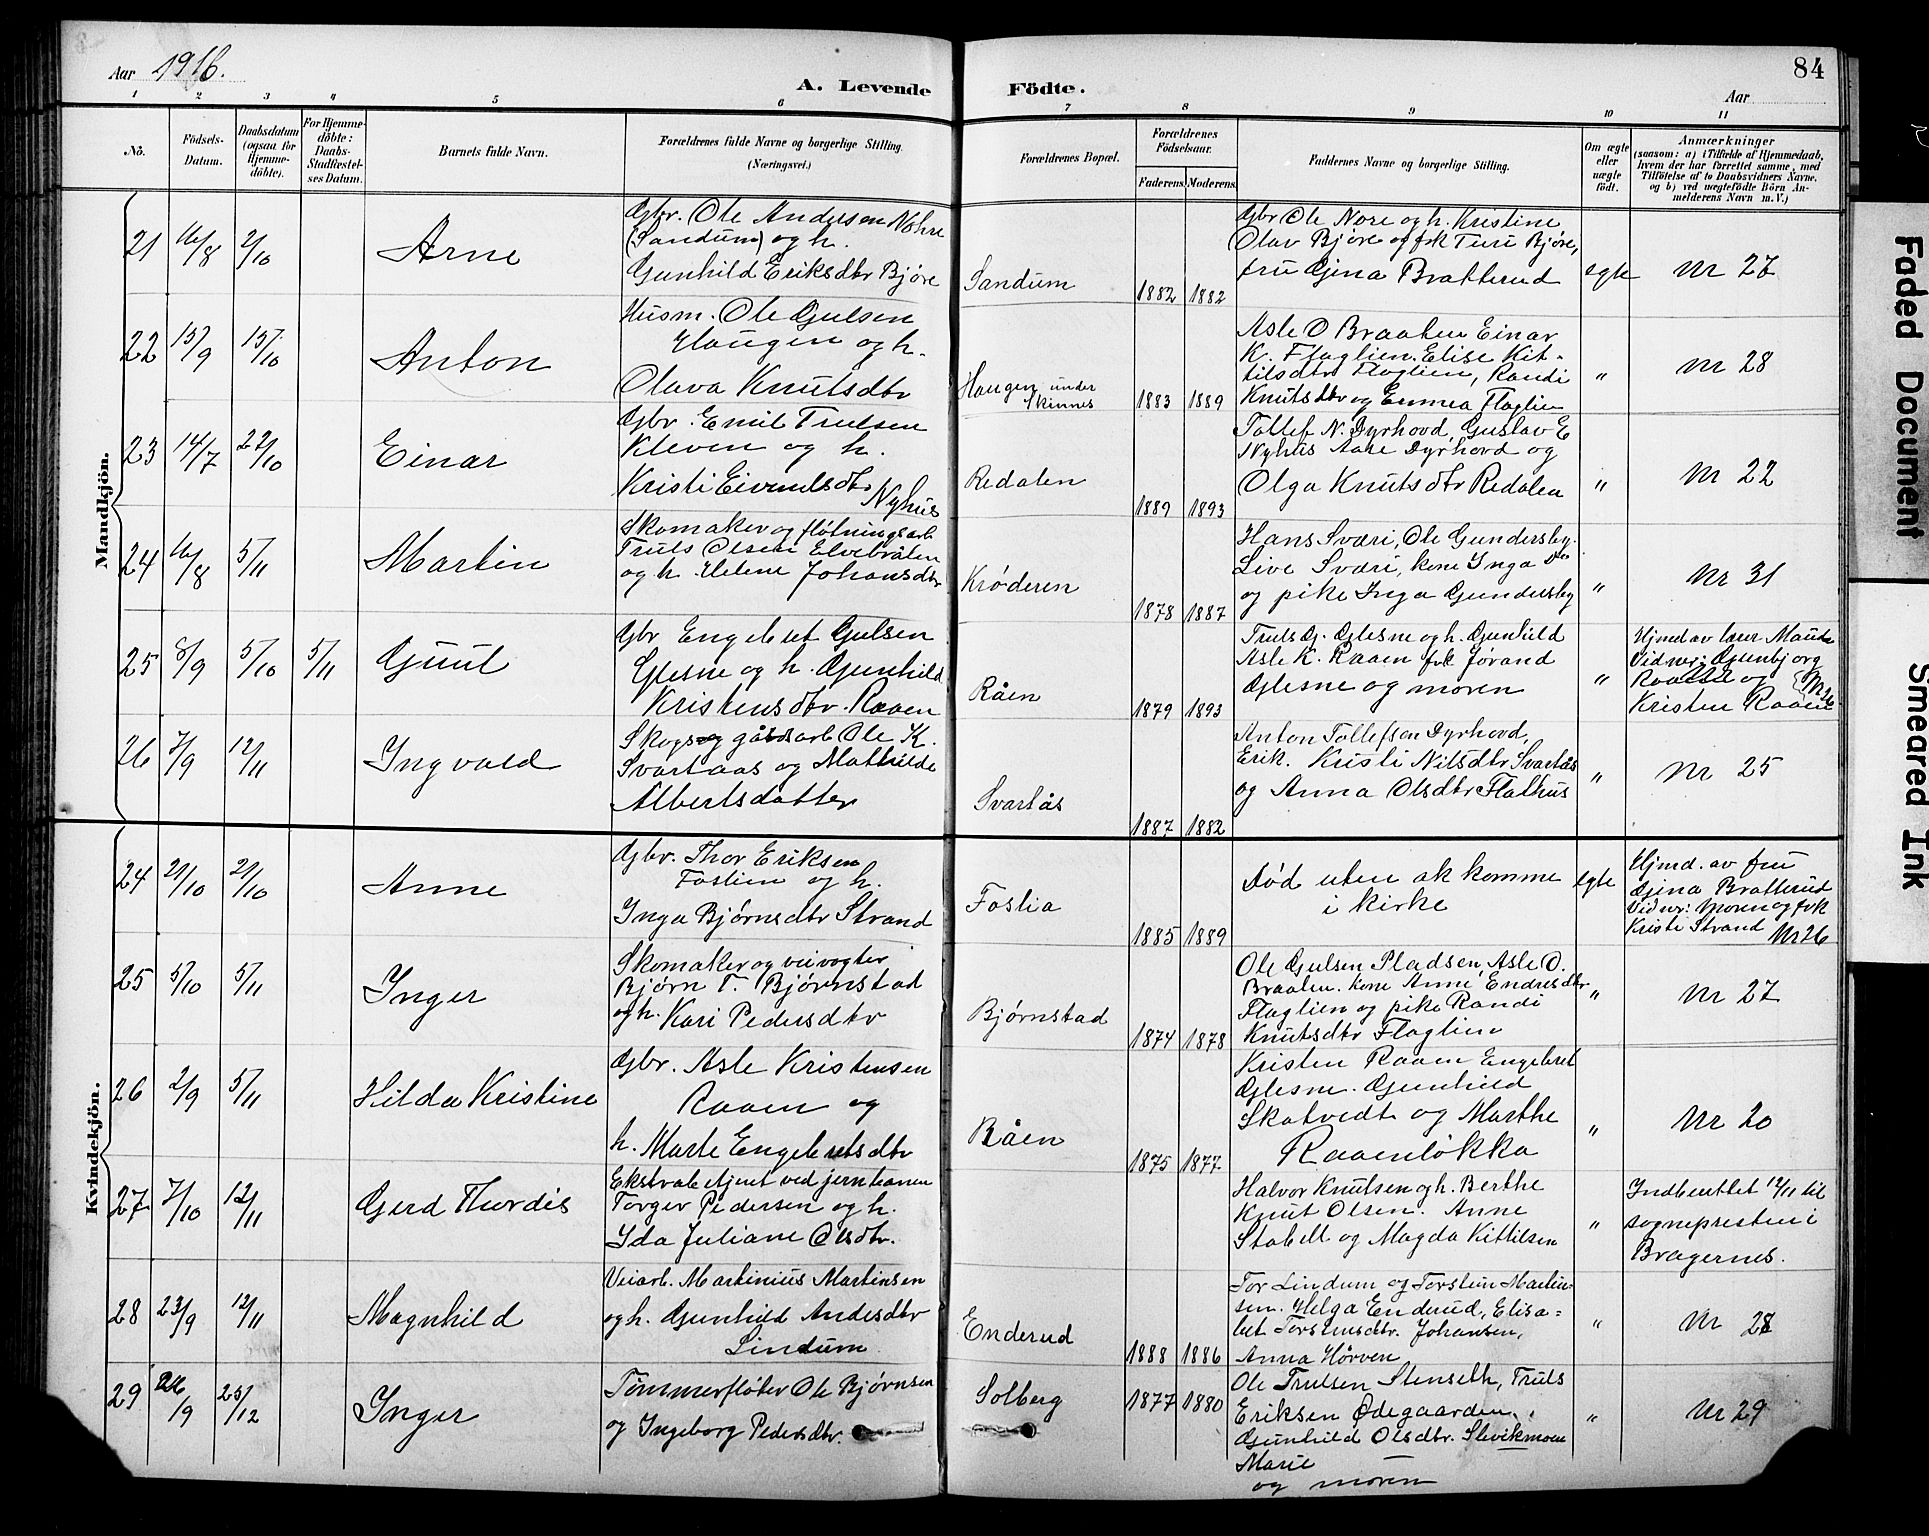 Aar 1916.
84
A. Levende Födte.
Aar
1 2 3 4 5 6 7 8 9 10 11
No.
Födsels-
Datum.
Daabsdatum
(ogsaa for
Hjemme-
döbte).
For Hjemme-
döbte:
Daabs-
Stadfæstel-
ses Datum.
Barnets fulde Navn.
Forældrenes fulde Navne og borgerlige Stilling.
(Næringsvei.)
Forældrenes Bopæl.
Forældrenes
Födselsaar.
Faderens. Moderens.
Faddernes Navne og borgerlige Stilling.
Om ægte
eller
uægte
födt.
Anmærkninger
(saasom: a) i Tilfælde af Hjemmedaab,
hvem der har forrettet samme, med
Tilföielse af to Daabsvidners Navne,
og b) ved uægtefödte Börn An-
melderens Navn m. V.)
Mandkjön.
21 16/8 2/10 Arne
Gbr. Ole Andersen Nohre
(Sandum) og h.
Gunhild Eriksdtr Björe
Sandum 1882 1882
Gbr Ole Nore og h. Kristine
Olav Björe og frk Turi Björe,
fru Gjina Bratterud
egte Nr 27
22 15/9 15/10 Anton
Husm. Ole Gulsen
Haugen og h.
Olava Knutsdtr
Haugen under
Skinnes 1883 1889
Asle O Braaten Einar
K. Flaglien. Elise Kit-
tilsdtr Flaglien, Randi
Knutsdtr og Emma Flaglien
" Nr 28
23 14/7 22/10 Einar
Gbr. Emil Trulsen
Kleven og h.
Kristi Eivindsdtr
Nyhus
Redalen 1889 1893
Tollef N. Dyrhovd, Gustav E
Nyhus Aase Dyrhovd og
Olga Knutsdtr Redalen
" Nr 22
24 16/8 5/11 Martin
Skomaker og fløtningsarb
Truls Olsen Elvebråten
og h Helene Johansdtr
Krøderen 1878 1887
Hans Sværi, Ole Gundersby.
Live Sværi, kone Inga Do
og pike Inga Gundersby
" Nr 31
25 8/9 5/10 5/11 Guul
Gbr Engebret Gulsen
Glesne og h. Gunhild
Kristensdtr. Raaen
Råen 1879 1893
Truls G. Glesne og h. Gunhild
Asle K. Raaen frk Jørand
Glesne og moren
"
Hjmd av lær
Vidner: Gunbjorg
og
Kristen Raaen
26 7/9 12/11 Ingvald
Skogs og gårdsarb Ole K.
Svartaas og Mathilde
Albertsdatter
Svartås 1887 1882
Anton Tollefsen Dyrhovd,
Erik. Kristi Nilsdtr Svartås
og Anna Olsdtr Flathus
" Nr 25
Kvindekjön.
24 21/10 21/10 Anne
Gbr. Thor Eriksen
Foslien og h.
Inga Bjørnsdtr Strand
Foslia 1885 1889
Død uten at komme
i kirke
egte
Hjmd. av fru
Gjina Bratterud
Vidner: Moren og frk
Kristi Strand Nr 26
25 5/10 5/11 Inger
Skomaker og veivogter
Bjørn T. Bjørnstad
og h. Kari Pedersdtr
Bjørnstad 1874 1878
Ole Gulsen Pladsen, Asle O.
Braaten. kone Anne Endresdtr
Flaglien og pike Randi
Knutsdtr Flaglien
" Nr 27
26 2/9 5/11 Hilda Kristine
Gbr. Asle Kristensen
Raaen og
h. Marte Engebretsdtr
Råen 1875 1877
Kristen Raaen Engebret
Glesne. Gunhild
Skatvedt og Marthe
Raaenløkka
" Nr 20
27 7/10 12/11 Gerd Thordis
Ekstrabetjent ved jernbanen
Torger Pedersen og h.
Ida Juliane Olsdtr.
Halvor Knutsen og h. Berthe
Knut Olsen. Anne
Stabell og Magda Kittilsen
"
Indberettet 12/11 til
sognepresten i
Bragernes.
28 23/9 12/11 Magnhild
Veiarb. Martinius Martinsen
og h. Gunhild Andersdtr
Lindum
Enderud 1888 1886
Tor Lindum og Torstein Martin-
sen. Helga Enderud, Elisa-
bet Torstensdtr. Johansen,
Anna Hørven
" Nr 28
29 26/9 25/12 Inger
Tømmerfløter Ole Bjørnsen
og Ingeborg Pedersdtr.
Solberg 1877 1880
Ole Trulsen Stenseth, Truls
Eriksen Ødegaarden.
Gunhild Olsdtr. Slevikmoen
Marie
og moren
" Nr 29
Faded Document
Smeared Ink